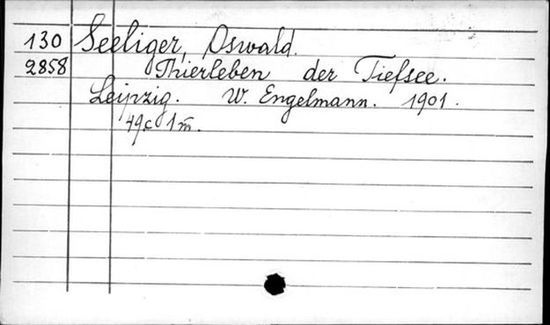 130 Seeliger, Oswald.
2858 Thierleben der Tiefsee.
Leipzig. W. Engelmann. 1901.
49c 1m.